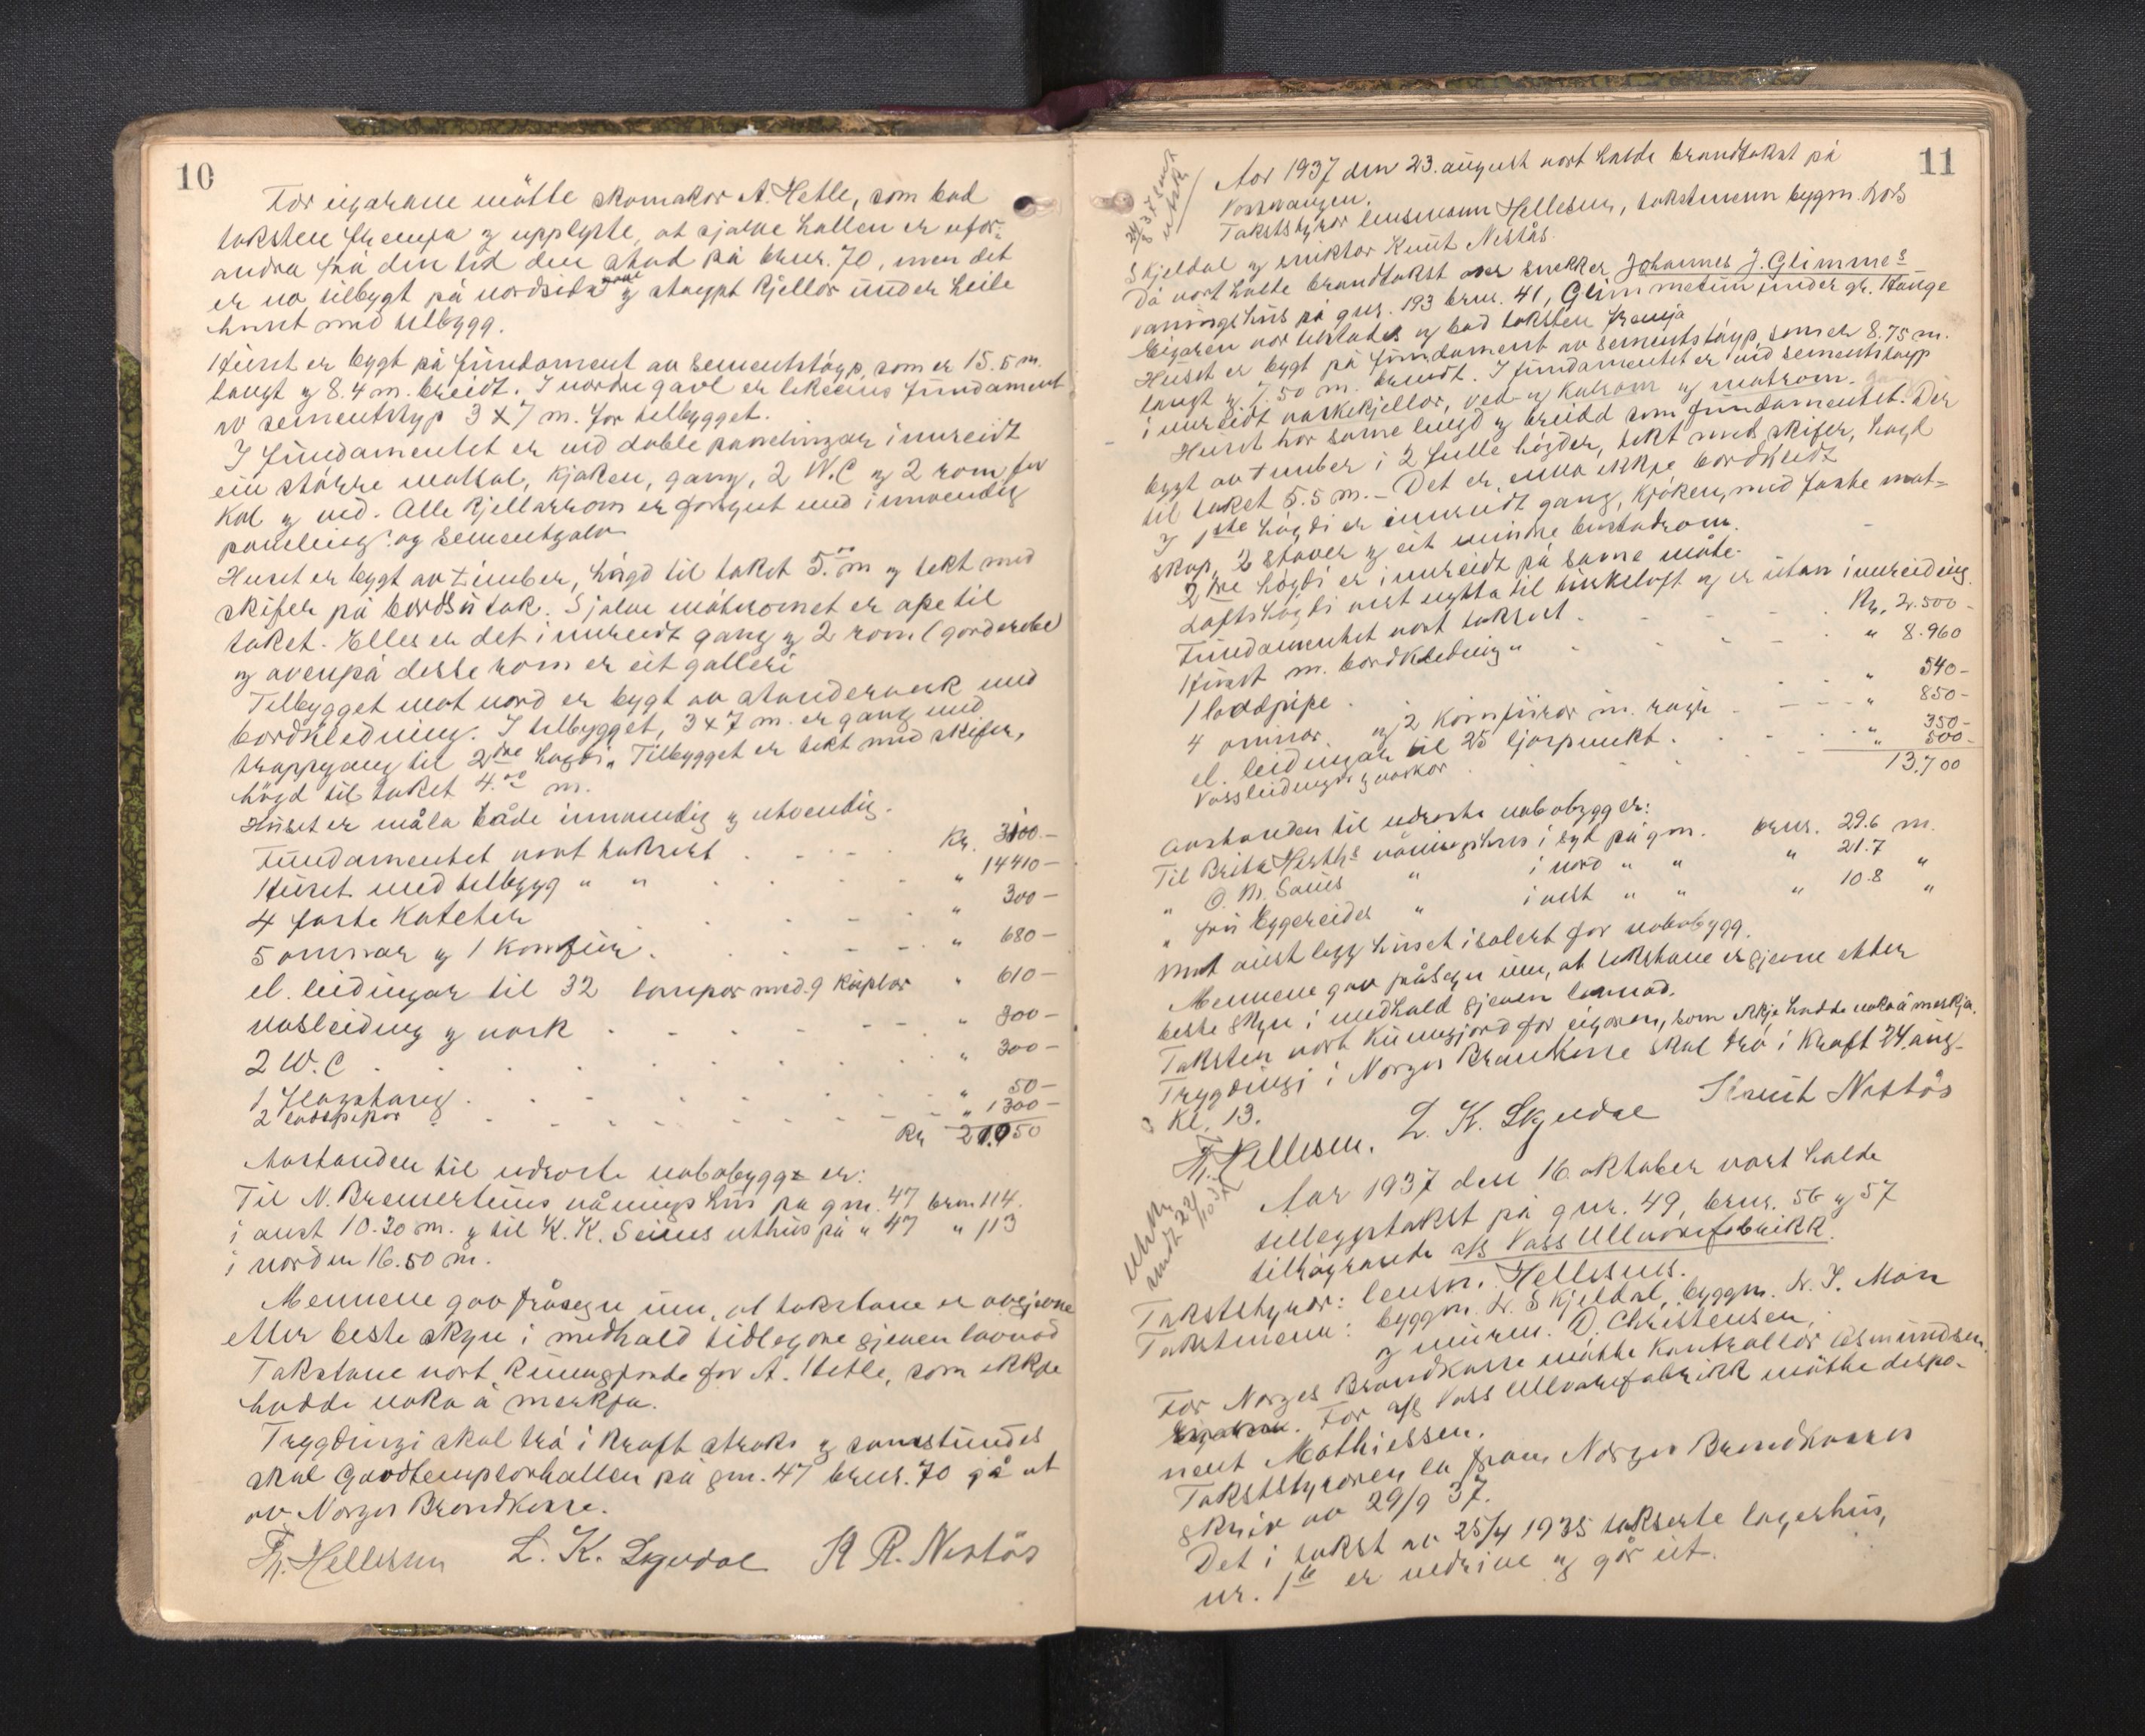 10
For eigarane møtte skomakar A. Hetle, som bad
taksten fremja og upplyste, at sjølve hallen er ufor=
andra frå den tid den stod på brnr. 70, men det
er no tilbygt på nordsida og støypt kjellar under heile
huset med tilbygg.
Huset er bygt på fundament av sementstøyp, som er 15.5 m.
langt og 8.4 m. breidt. I nordre gavl er likeeins fundament
av sementstyp 3 x 7 m. for tilbygget.
I fundamentet er ved doble panelingar innreidt
ein større matsal, kjøken, gang, 2 W.C og 2 rom for
kol og ved. Alle kjellarrom er forsynt med innvendig
paneling og sementgolv
Huset er bygt av timber, høgd til taket 5.00 m og tekt med
skifer på bordsutak. Sjølve møteromet er ope til
taket. Elles er det innreidt gang og 2 rom (garderobe)
og ovenpå desse rom er eit galleri
Tilbygget mot nord er bygt av standerverk med
bordkledning. I tilbygget, 3 x 7 m. er gang med
trappgang til 2dre høgdi. Tilbygget er tekt med skifer,
høgd til taket 4.00 m.
Huset er måla både innvendig og utvendig.
Fundamentet vart taksert . . . . Kr. 3100.—
Huset med tilbygg " " . . . " 14410—
4 faste kateter . . . " 300—
5 omnar og 1 komfur . . . . " 680—
el. leidingar til 32 lampor med 9 kuplar " 610—
vasleiding og vask . . . . " 300—
2 W.C . . . . . " 300—
1 flagstang . . . . . " 50—
2 ludspipor . . . . . " 1300—
Kr 21050
Avstanden til næroste nabobygg er:
Til N. Bremertuns våningshus på gnr. 47 brnr. 114.
i aust 10.30 m. og til K. K. Seims uthus på " 47 " 113
i norden 16.50 m.
Mennene gav fråsegn um, at takstane er avgjevne
etter beste skyn i medhald tidlegare gjeven lovnad
Takstane vart kunngjorde for A. Hetle, som ikkje
hadde noko å merkja.
Trygdingi skal trå i kraft straks og samstundes
skal Goodtemplarhallen på gnr. 47 brnr. 70 gå ut
av Norges Brandkasse.
Th. Hellesen L. K. Skjeldal K R. Nestås
11
24/8 37 sendt
utskr.
Aar 1937 den 23. august vart halde brandtakst på
Vossevangen.
Takststyrar lensmann Hellesen, takstmenn bygm. Lars
Skjeldal og snikkar Knut Nestås.
Då vart halde brandtakst over snekker Johannes J. Glimmes
våningshus på gnr. 193 brnr. 41, Glimmetun under gr. Hauge
Eigaren var tilstades og bad taksten fremja
Huset er bygt på fundament av sementstøyp, som er 8.75 m.
langt og 7.50 m. breidt. I fundamentet er ved sementstøyp
innreidt vaskekjellar, ved- og kolrom og matrom.
Huset har same lengd og breidd som fundamentet. Der
bygt av timber i 2 fulle høgder, tekt med skifer, høgd
til taket 5.5 m. – Det er enno ikkje bordkledt
I 1ste høgdi er innreidt gang, kjøken, med faste mat=
skap, 2 stover og eit mindre bustadrom.
2dre høgdi er innreidt på same måte.
Loftshøgdi vert nytta til turkeloft og er utan innreiding.
Fundamentet vart taksert . . . . Kr. 2.500—
Huset m. bordkledning " . . . . " 8.960
1 loddpipe . . . . " 540—
4 omnar og 2 komfurar m. røyr . . . . " 850—
el. leidingar til 25 ljospunkt . . . . " 350—
Vassleidingar og vaskar . . . . " 500—
13.700
Avstanden til næraste nabobygg er:
Til Brita Herths våningshus i syd på gnr. brnr. 29.6 m.
" O. M. Saues " i nord " " " 21.7 "
" fru Eggereides " i vest " " " 10.8 "
Mot aust ligg huset isolert for nabobygg.
Mennene gav fråsegn um, at takstane er gjevne etter
beste skyn i medhald gjeven lovnad.
Taksten vart kunngjord for eigaren, som ikkje hadde noko å merkja.
Trygdingi i Norges Brandkasse skal trå i kraft 24. aug.
Kl. 13.
Th. Hellesen. L. K. Skjeldal Knut Nestås
Utskr.
sendt 22/10 37
Aar 1937 den 16 oktober vart halde
tilleggstakst på gnr. 49, brnr. 56 og 57
tilhøyrande a/s Voss Ullvarefabrikk.
Takststyrar: lensm. Hellesnes.
Takstmenn: byggm. L. Skjeldal, byggm. L. J. Møn
og murm. D. Christensen.
For Norges Brandkasse møtte kontrollør Asmundsen.
For a/s Voss Ullvarefabrikk møtte dispo-
nent Mathiessen.
Takststyraren la fram Norges Brandkasses
skriv av 29/9 37.
Det i takst av 25/4 1935 takserte lagerhus,
nr. 1 er nedrive og går ut.